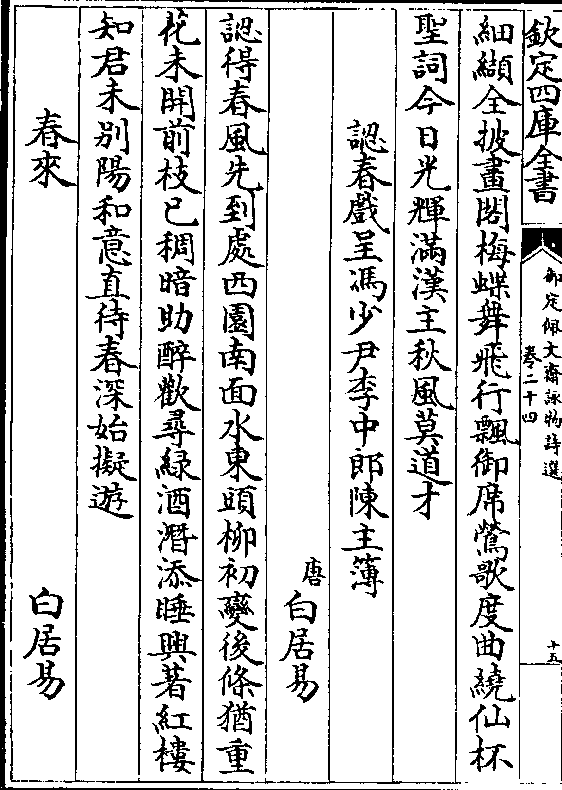 欽定四庫全書
御定佩文齋詠物詩選
卷二十四
十五
細纈全披畫閣梅蝶舞飛行飄御席鶯歌度曲繞仙杯
聖詞今日光輝滿漢主秋風莫道才
認春戲呈馮少尹李中郎陳主簿
唐白居易
認得春風先到處西園南面水東頭柳初變後條猶重
花未開前枝已稠暗助醉歡尋綠酒潛添睡興著紅樓
知君未別陽和意直待春深始擬遊
春來
白居易